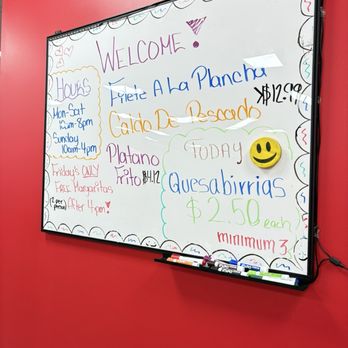 WELCOME!
HOURS
Mon-Sat
10am-8pm
Sunday
10am-4pm
Friday's ONLY
FREE Margaritas
After 4pm!
2 per person
Filete A La Plancha
$12.99
Caldo De Pescado
Platano
Frito $4.12
TODAY
Quesabirrias
$2.50 each
minimum 3